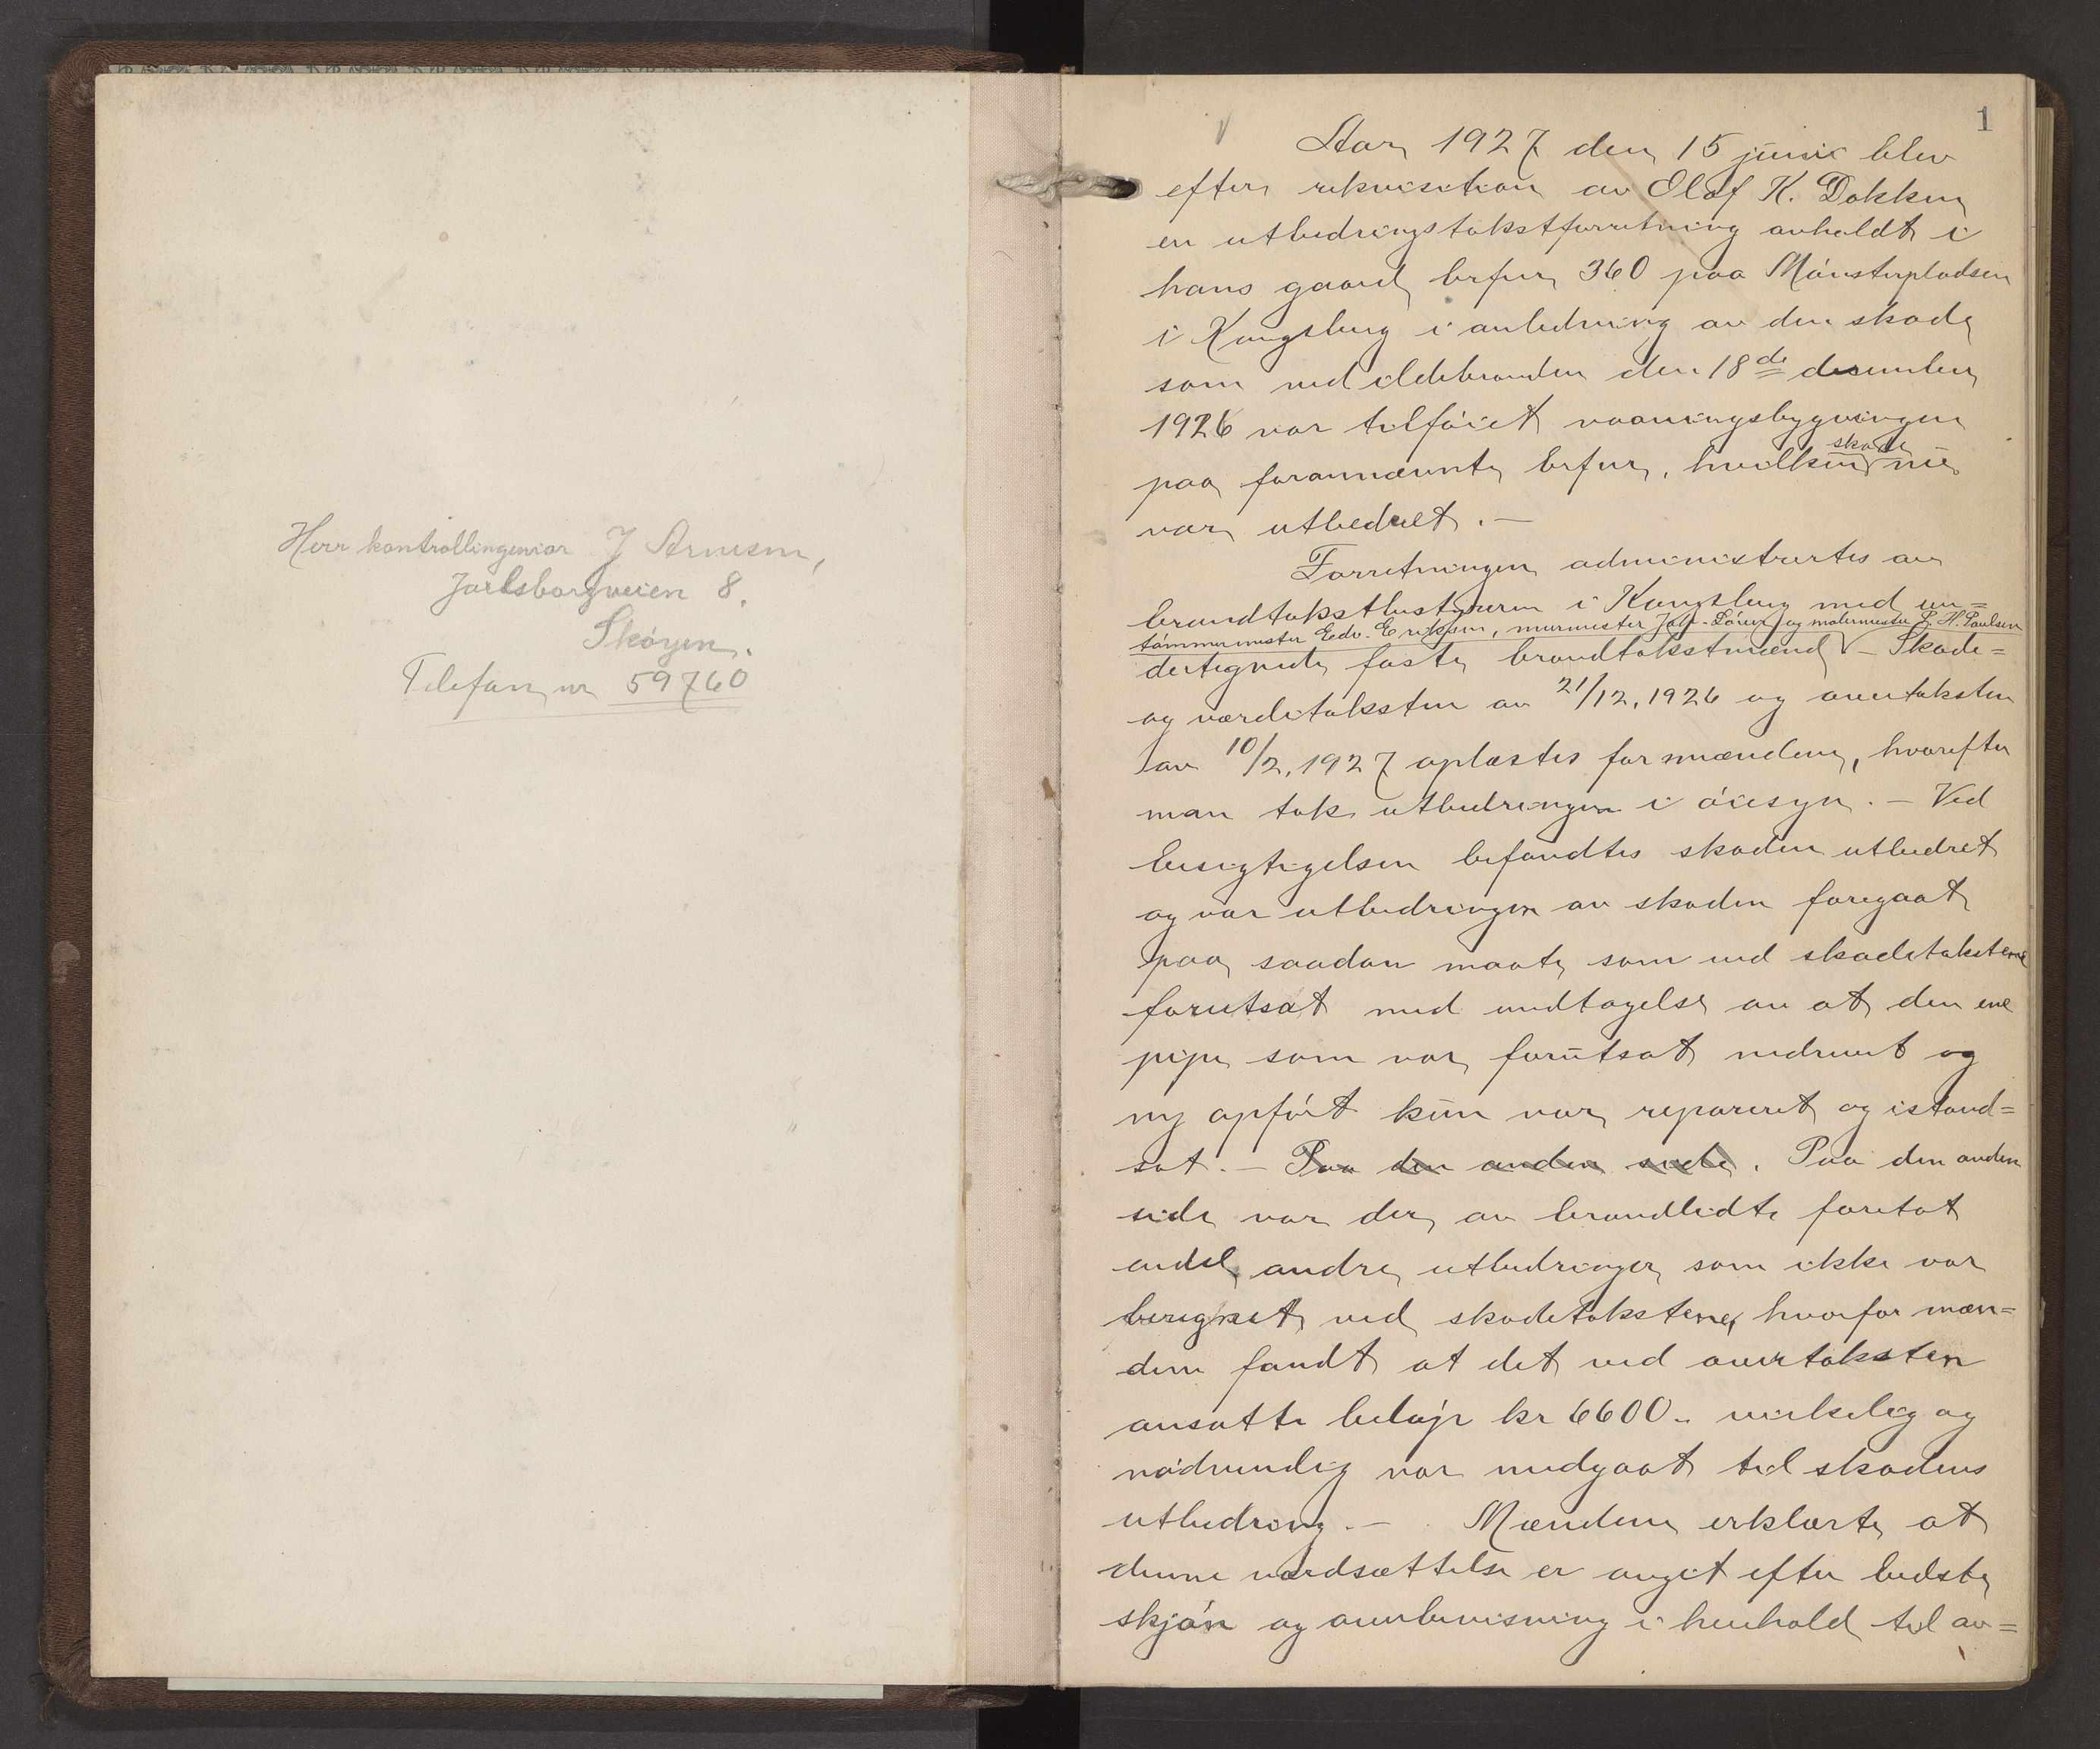 Herr kontrollingeniør J Arnesen,
Jarlsborgveien 8.
Skøyen.
Telefon nr 59760
1
Aar 1927 den 15 juni blev
efter rekvisition av Olaf K. Dokken
en utbedringstakstforretning avholdt i
hans gaard brfnr 360 paa Mønsterpladsen
i Kongsberg i anledning av den skade
som ved ildebranden den 18de desember
1926 var tilføiet vaaningsbygningen
paa forannævnte brfnr, hvilken skade nu
var utbedret. —
Forretningen administrertes av
brandtakstbestyreren i Kongsberg med un=
tømmermester Edv. Eriksen, murmester Joh. og malermester P. H. Paulsen
dertegnede faste brandtakstmænd — Skade=
og værditaksten av 21/12, 1926 og overtaksten
av 10/2, 1927 oplæstes for mændene, hvorefter
man tok utbedringen i øiesyn. — Ved
besigtigelsen befandtes skaden utbedret
og var utbedringen av skaden foregaat
paa saadan maate som ved skadetakstene
forutsat med undtagelse av at den ene
pipe som var forutsat nedrevet og
ny opført kun var reparert og istand=
sat. — Paa den anden side. Paa den anden
side var der av brandlidte foretat
endel andre utbedringer som ikke var
beregnet ved skadetakstene, hvorfor mæn=
dene fandt at det ved overtaksten
ansatte beløp kr 6600.- virkelig og
nødvendig var medgaat til skadens
utbedring. — Mændene erklærte at
denne værdsættelse er avgit efter bedste
skjøn og overbevisning i henhold til av=